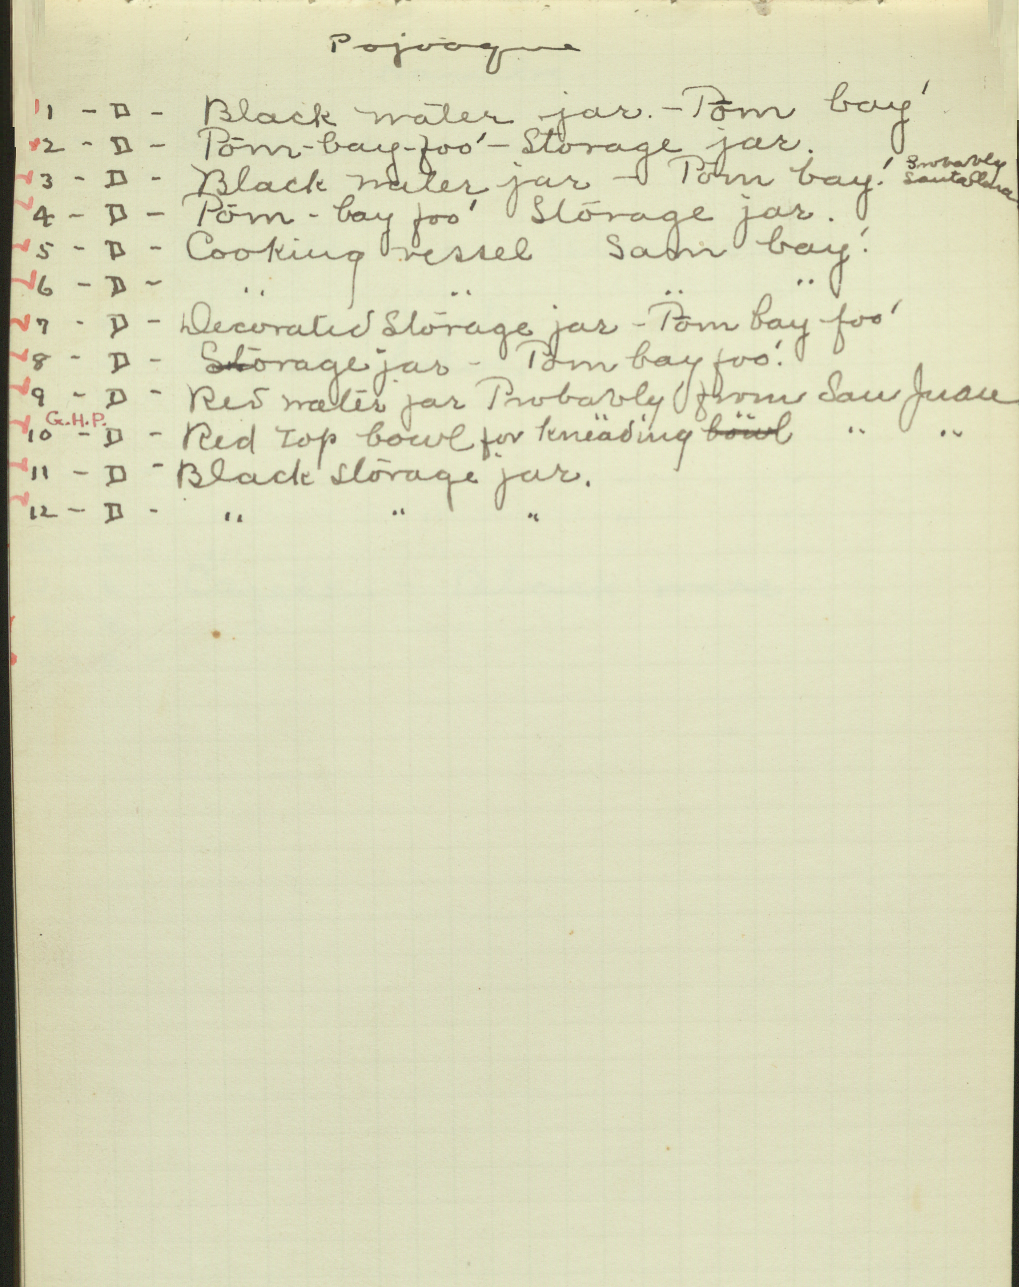 Pojoaque
1 - D - Black water jar. - Pōm bay'
2 - D - Pōm-bay-foo' - Storage jar.
3 - D - Black water jar - Pōm bay.' Probably Santa Clara
4 - D - Pōm - bay foo' Storage jar.
5 - D - Cooking vessel Sam bay.'
6 - D - " " " "
7 - D - Decorated Storage jar - Pōm bay foo'
8 - D - Storage jar - Pōm bay foo'.
9 - D - Red water jar Probably from San Juan
G.H.P.
10 - D - Red top bowl for kneading bowl " "
11 - D - Black storage jar.
12 - D - " " "